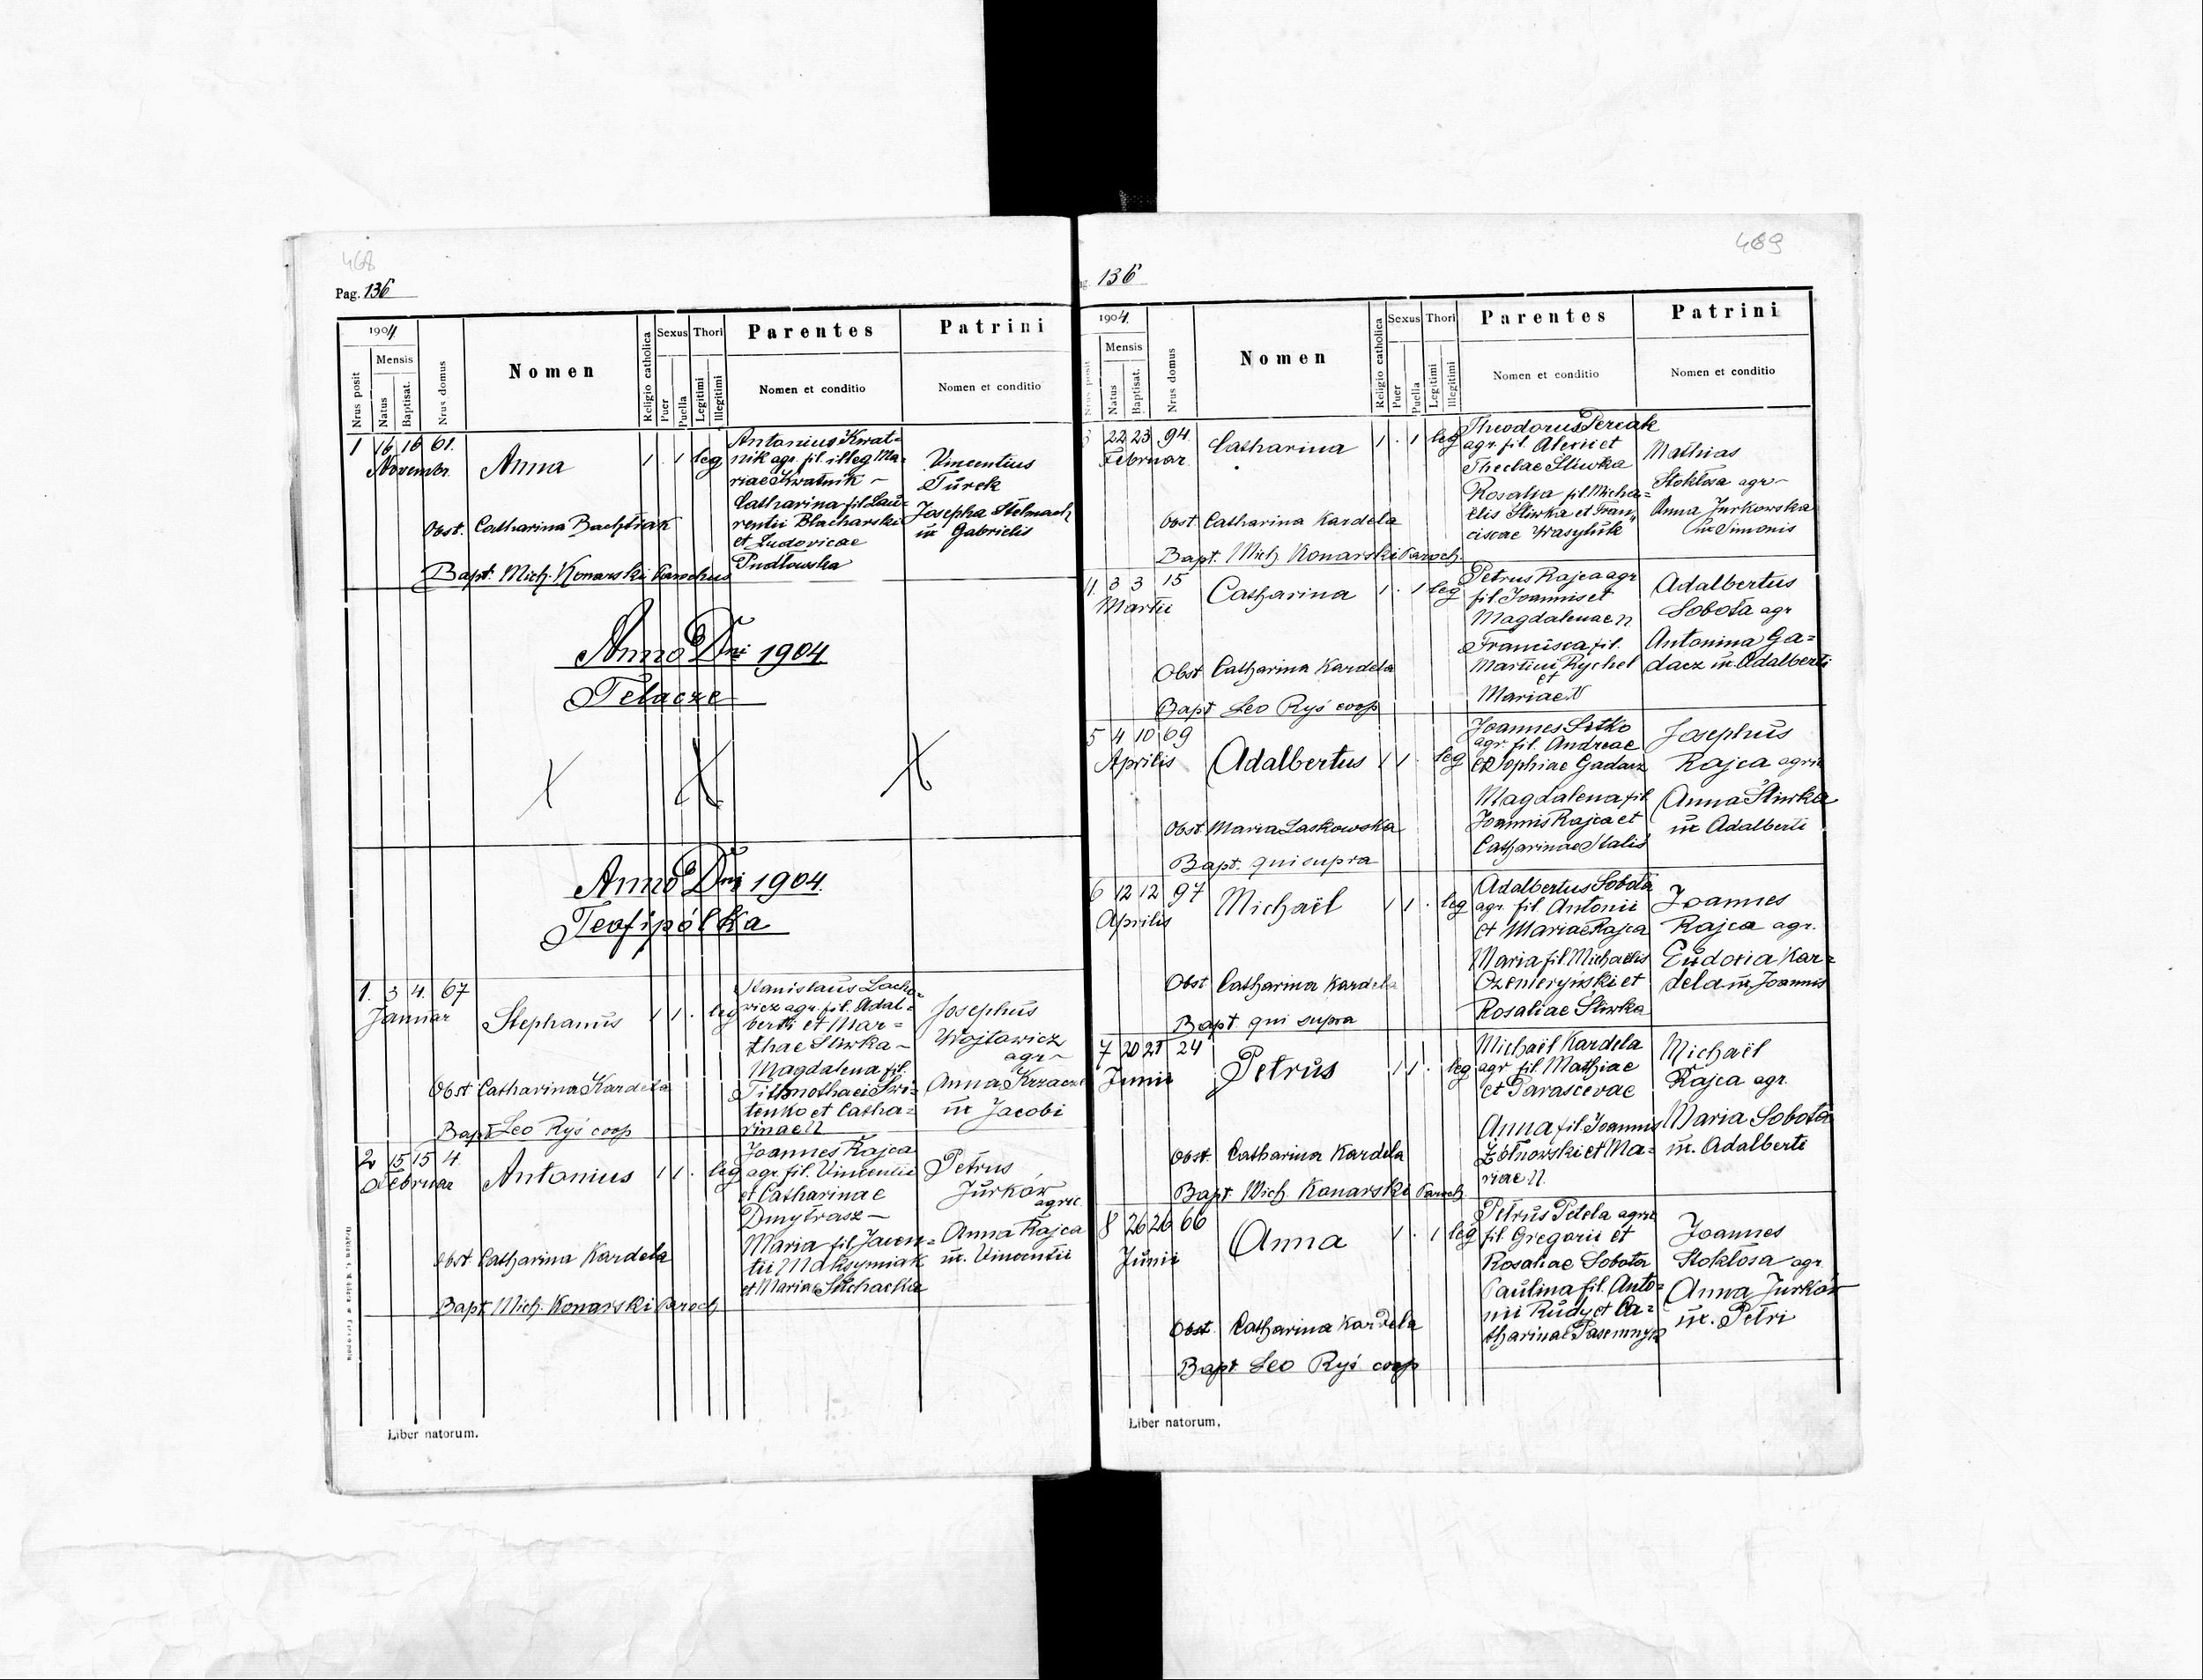 468
Pag. 136
1904
Nrus posit
Mensis
Natus
Baptisat.
Nrus domus
Nomen
Religio catholica
Sexus
Puer
Puella
Thori
Legitimi
Illegitimi
Parentes
Nomen et conditio
Patrini
Nomen et conditio
1 16 16 61.
Novembr.
Anna
1 . 1 leg
Antonius Kwat=
nik agr. fil. illeg Ma=
riae Kwatnik –
Catharina fil. Lau=
rentii Blacharski
et Ludovicae
Pudłowska
Vincentius
Turek
Josepha Stelmach
ux Gabrielis
Obst. Catharina Bachtiak
Bapt. Mich. Konarski Parochus
Anno Dni 1904
Telacze
Anno Dni 1904.
Teofipólka
1. 3 4. 67
Januar
Stephanus
1 1 . leg
Stanislaus Lacho=
wicz agr. fil. Adal=
berti et Mar=
thae Sliwka –
Magdalena fil.
Tithmothaei Swi=
tenko et Catha=
rinae N
Josephus
Wojtowicz
agr –
Anna Krzacz
ux Jacobi
Obst Catharina Kardela
Bapt Leo Ryś coop
2 15 15 4
Februar
Antonius
1 1 . leg
Joannes Rajca
agr. fil. Vincentii
et Catharinae
Dmytrasz –
Maria fil. Jacen=
tii Maksymiak
et Mariae
Petrus
Jurków
agric
Anna Rajca
ux. Vincentii
Obst Catharina Kardela
Bapt Mich. Konarski Paroch
Liber natorum.
469
136
1904.
Mensis
Natus
Baptisat.
Nrus domus
Nomen
Religio catholica
Sexus
Puer
Puella
Thori
Legitimi
Illegitimi
Parentes
Nomen et conditio
Patrini
Nomen et conditio
3 22 23 94
Februar
Catharina
1 . 1 leg
Theodorus Percak
agr. fil. Alexii et
Theclae Sliwka
Rosalia fil. Micha=
elis Sliwka et Fran"
ciscae Wasyluk
Mathias
Stokłosa agr –
Anna Jurkowska
ux Simonis
Obst Catharina Kardela
Bapt. Mich Konarski Paroch.
4. 3 3 15
Martii
Catharina
1 . 1 leg
Petrus Rajca agr
fil. Joannis et
Magdalenae N
Francisca fil.
Martini Rychel
et
Mariae N
Adalbertus
Sobota agr
Antonina Ga=
dacz ux Adalberti
Obst Catharina Kardela
Bapt Leo Ryś coop
5 4 10 69
Aprilis
Adalbertus
1 1 . leg
Joannes Sitko
agr. fil. Andreae
et Sophiae Gadacz
Magdalena fil
Joannis Rajca et
Catharinae Stalis
Josephus
Rajca agric
Anna Sliwka
ux Adalberti
Obst Maria Laskowska
Bapt. qui supra
6 12 12 97
Aprilis
Michaël
1 1 . leg
Adalbertus Sobota
agr. fil. Antonii
et Mariae Rajca
Maria fil. Michaelis
Czemeryński et
Rosaliae Sliwka
Joannes
Rajca agr.
Eudoxia Kar=
dela ux Joannis
Obst Catharina Kardela
Bapt qui supra
7 20 21 24
Junii
Petrus
1 1 . leg
Michaël Kardela
agr fil. Mathiae
et Parascevae
Anna fil. Joannis
Żołnowski et Ma=
riae N.
Michaël
Rajca agr.
Maria Sobota
ux. Adalberti
Obst. Catharina Kardela
Bapt. Mich. Konarski Paroch
8 26 26 66
Junii
Anna
1 . 1 leg
Petrus Petela agric
fil. Gregorii et
Rosaliae Sobota
Paulina fil. Anto=
nii Rudy et Ca=
tharinae Pasemnyk
Joannes
Stokłosa agr.
Anna Jurków
ux. Petri
Obst. Catharina Kardela
Bapt. Leo Ryś coop
Liber natorum.